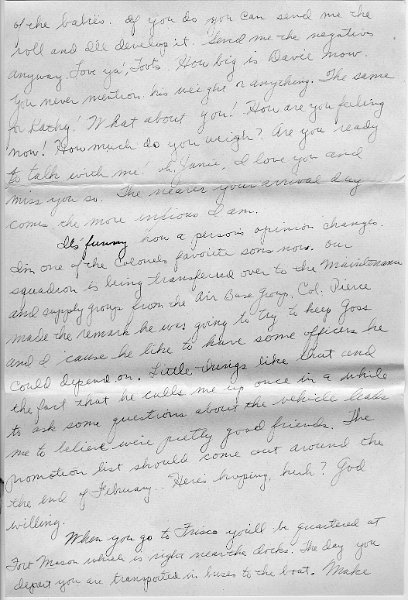 of the babies. If you do you can send me the
roll and I'll develop it. Send me the negatives
anyway. Love ya', Toots. How big is Davie now.
You never mention his weight or anything. The same
for Kathy! What about you! How are you feeling
now! How much do you weigh? Are you ready
to talk with me! Janie, I love you and
miss you so. The nearer your arrival day
comes, the more anxious I am.
It's funny how a person's opinion changes.
I'm one of the Colonels favorite sons now. Our
squadron is being transferred over to the Maintenance
and supply groups from the Air Base Group. Col. Pierce
made the remark he was going to try to keep Goss
and I 'cause he like to have some officers he
could depend on. Little things like that and
the fact that he calls me up once in a while
to ask some questions about the vehicle leads
me to believe we're pretty good friends. The
promotion list should come out around the
the end of February. Here's hoping, huh? God
willing.
When you go to Frisco you'll be quartered at
Fort Mason which is right near the docks. The day you
depart you are transported in buses to the boat. Make